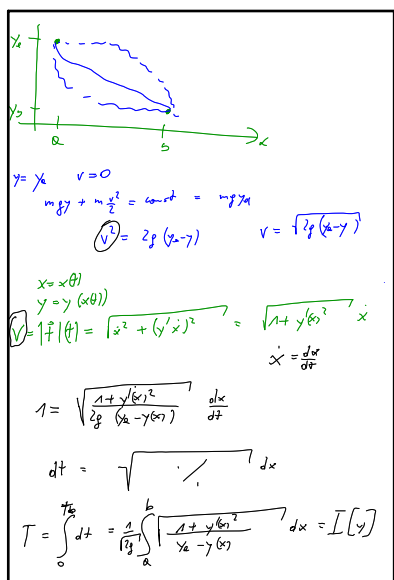 yₐ
y_b
a
b
x
y = yₐ v = 0
mgy + m v²/2 = const = mgyₐ
v² = 2g (yₐ - y) v = √(2g (yₐ - y))
x = x(t)
y = y (x(t))
v = |ṙ|(t) = √(ẋ² + (y'ẋ)²) = √(1 + y'(x)²) ẋ
ẋ = dx/dt
1 = √((1 + y'(x)²)/(2g (yₐ - y(x)))) dx/dt
dt = √(·/.) dx
T = ∫₀^{t_b} dt = 1/√(2g) ∫ₐᵇ √((1 + y'(x)²)/(yₐ - y(x))) dx = I[y]